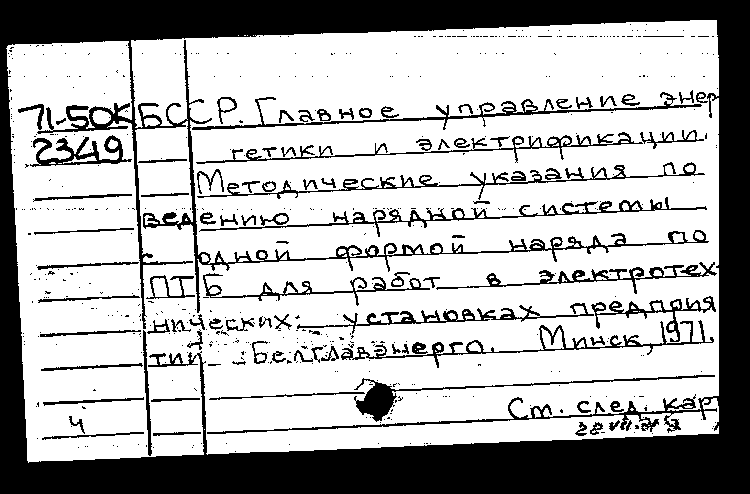 71-50К БССР. Главное управление энер
2349 гетики и электрификации.
Методические указания по
ведению нарядной системы
с одной формой наряда по
ПТБ для работ в электротех
нических установках предприя
тий Белглавэнерго. Минск, 1971.
Ст. след. кар
4